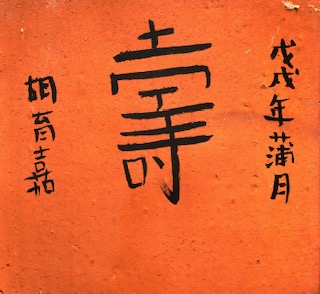 戊戌年蒲月
壽
胡育嘉